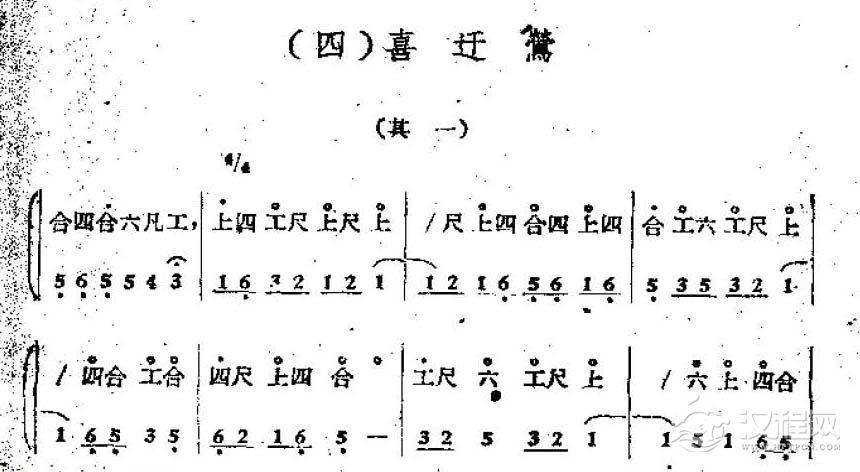 （四）喜迁莺
（其一）
4/4
合四合六凡工，上四工尺上尺上 /尺上四合四上四 合工六工尺上
5 6 5 5 4 3 1 6 3 2 1 2 1 1 2 1 6 5 6 1 6 5 3 5 3 2 1
/四合工合 四尺上四合 工尺六工尺上 /六上四合
1 6 5 3 5 6 2 1 6 5 — 3 2 5 3 2 1 1 5 1 6 5
汉程网